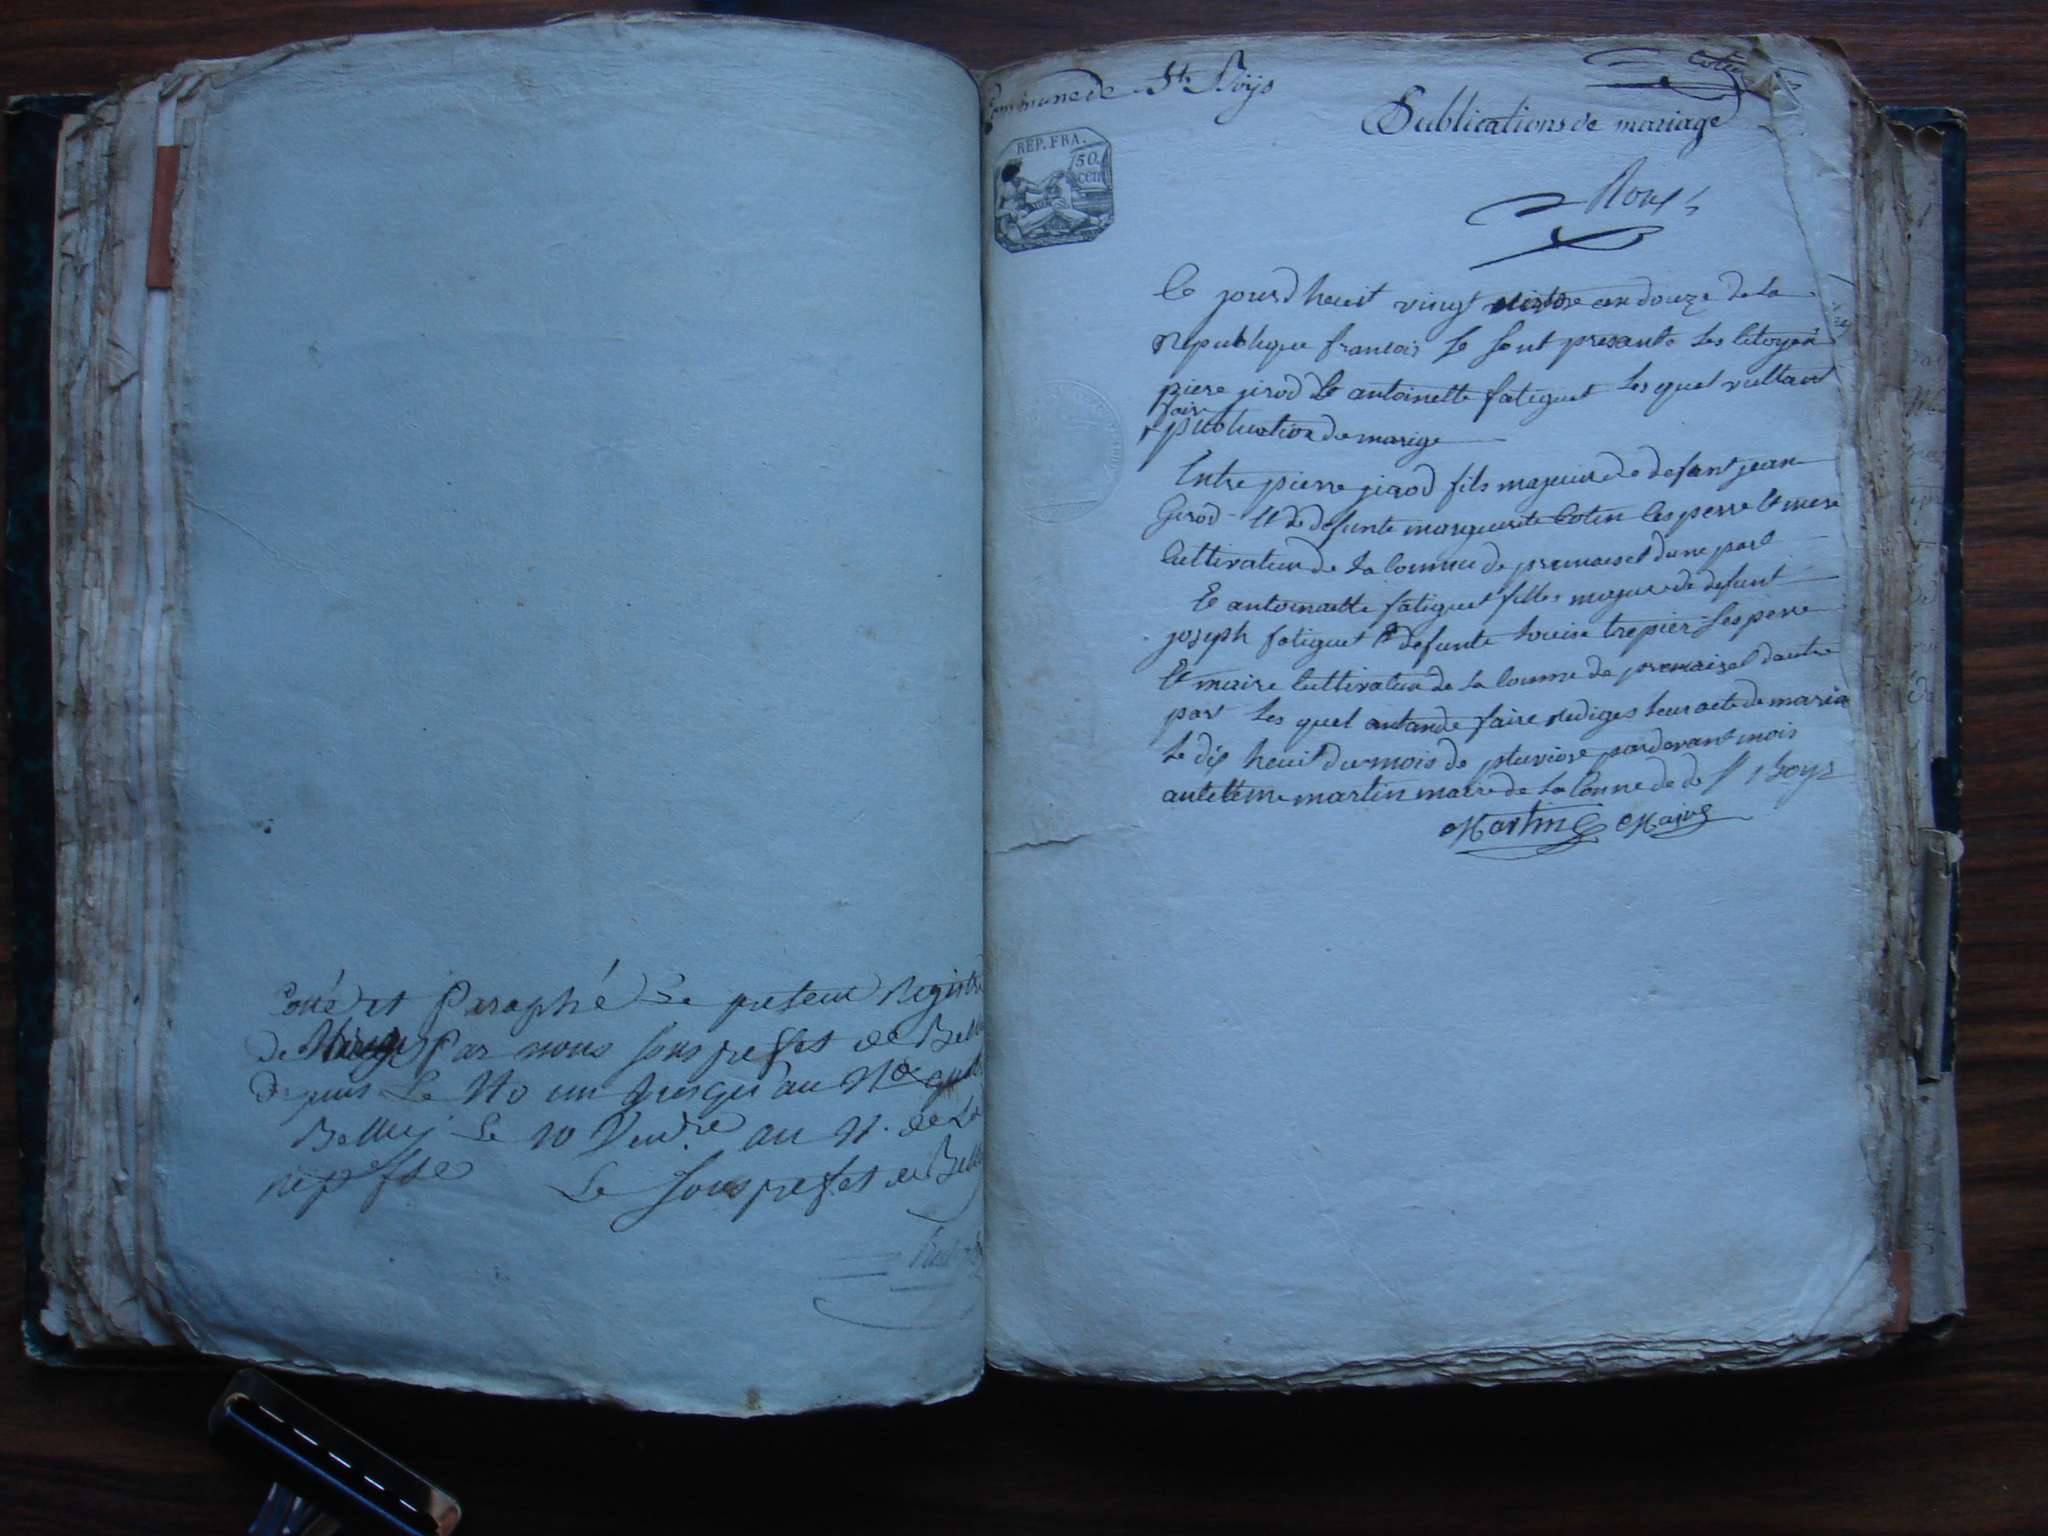 Coté et Paraphé Le present Registre
de Par nous sous prefet de Belle
depuis Le No un jusqu'au No
Belley Le 10 Vend.re an 11. de La
rep. fse Le sous prefet de Belle
Commune de St. Boys
Publications de mariage
REP. FRA.
50.
cen
Roux
Ce jourd heuit vingt nivose an douze de la
republique francois se sont presante les citoyen
piere jirod et antoinette fatiguet les quel vullant
faire
publication de marige
Entre pierre jirod fils majeure de defunt jean
Girod et de defunte marguerite Cotin les perre et mere
Cultivateur de la Commu de premaisel dune part
Et antoinette fatiguet filles majure de defunt
joseph fatiguet et defunte Louise trepier ses perre
et maire Cultivateur de la Commu de premaisel dautre
part les quel antande faire rediges leur acte de maria
le dix heuit du mois de pluviose pardevant mois
antelleme martin maire de la Comne de de St Boys
Martin Maire